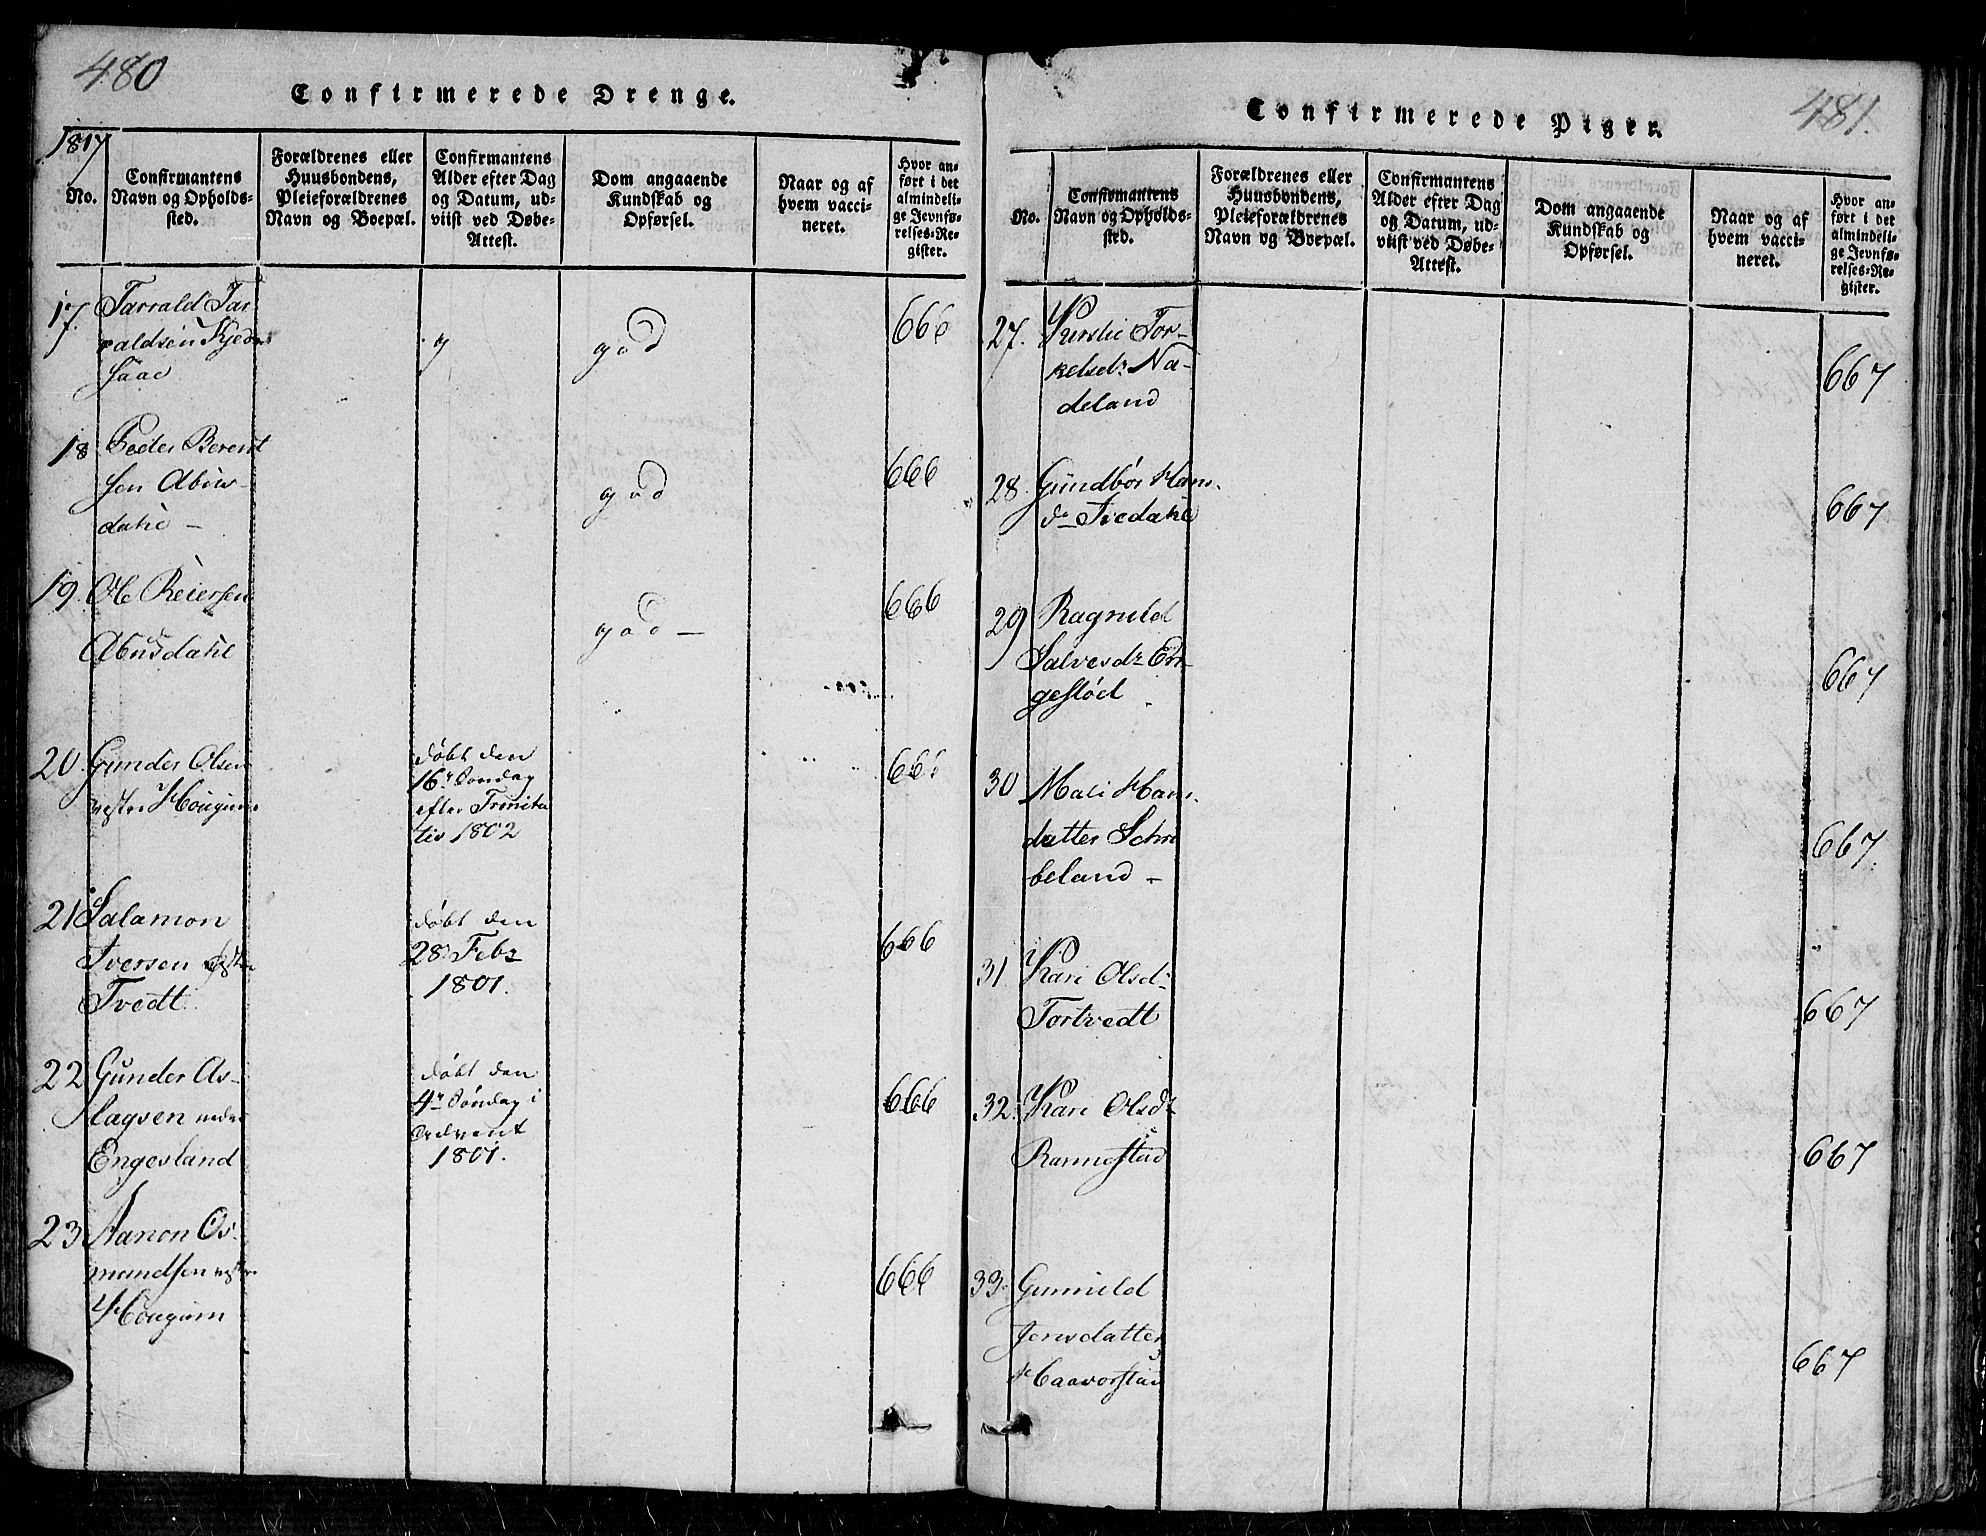 480
Confirmerede Drenge.
1817
No.
Confirmantens
Navn og Opholds-
sted.
Forældrenes eller
Huusbondens,
Pleieforældrenes
Navn og Boepæl.
Confirmantens
Alder efter Dag
og Datum, ud-
viist ved Døbe-
Attest.
Dom angaaende
Kundskab og
Opførsel.
Naar og af
hvem vacci-
neret.
Hvor an-
ført i det
almindeli-
ge Jevnfø-
relses-Re-
gister.
17. Tarrald Tar
valdsen
god
666
18 Peder Berent
sen Abus-
dahl -
god
666
19. Ole Reiersen
Abusdahl
god -
666
20. Gunder Olsen
vestre Hougum
døbt den
16r Søndag
efter Trinita
tis 1802
666
21 Salamon
Iversen
Tvedt.
døbt den
28. Febr
1801.
666
22 Gunder As-
lagsen nedre
Engesland
døbt den
4r Søndag i
Advent
1801.
666
23 Aanon Os-
mundsen vestre
Hougum
666
481.
Confirmerede Piger.
No.
Confirmantens
Navn og Opholds-
sted.
Forældrenes eller
Huusbondens,
Pleieforældrenes
Navn og Boepæl.
Confirmantens
Alder efter Dag
og Datum, ud-
viist ved Døbe-
Attest.
Dom angaaende
Kundskab og
Opførsel.
Naar og af
hvem vacci-
neret.
Hvor an-
ført i det
almindeli-
ge Jevnfø-
relses-Re-
gister.
27. Kirstie Tor-
kelsdr Na-
deland
667
28. Gundbor Hans
dr Tvedahl
667
29 Ragnild
Salvesdr En-
gestød
667
30 Mali Hans
datter Schre
beland -
667.
31 Kari Olsdr
Tortvedt
667
32. Kari Olsdr
Rannestad
667
33. Gunnild
Jensdatter
Haavorstad
667